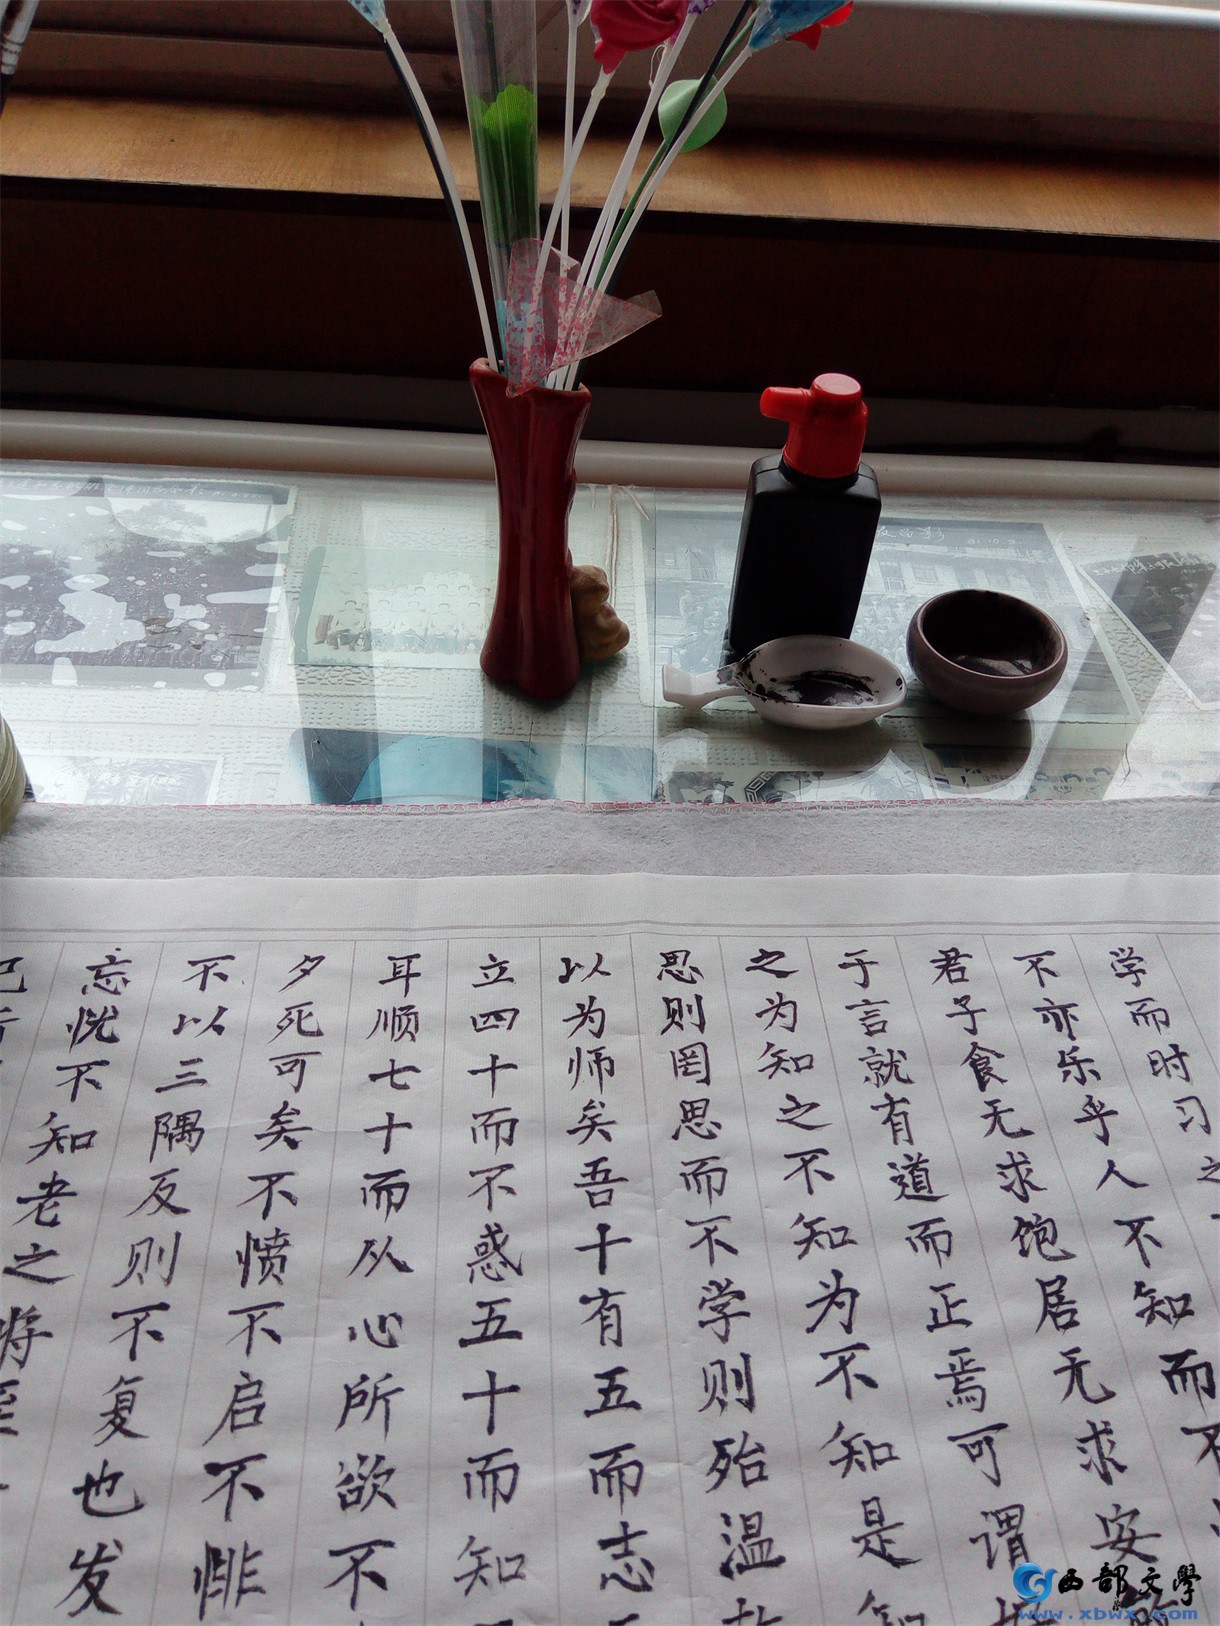 学而时习之
不亦乐乎人不知而不
君子食无求饱居无求安
于言就有道而正焉可谓
之为知之不知为不知是知
思则罔思而不学则殆温故
以为师矣吾十有五而志
立四十而不惑五十而知
耳顺七十而从心所欲不
夕死可矣不愤不启不悱
不以三隅反则不复也发
忘忧不知老之将至
西部文学
www.xbwx.com